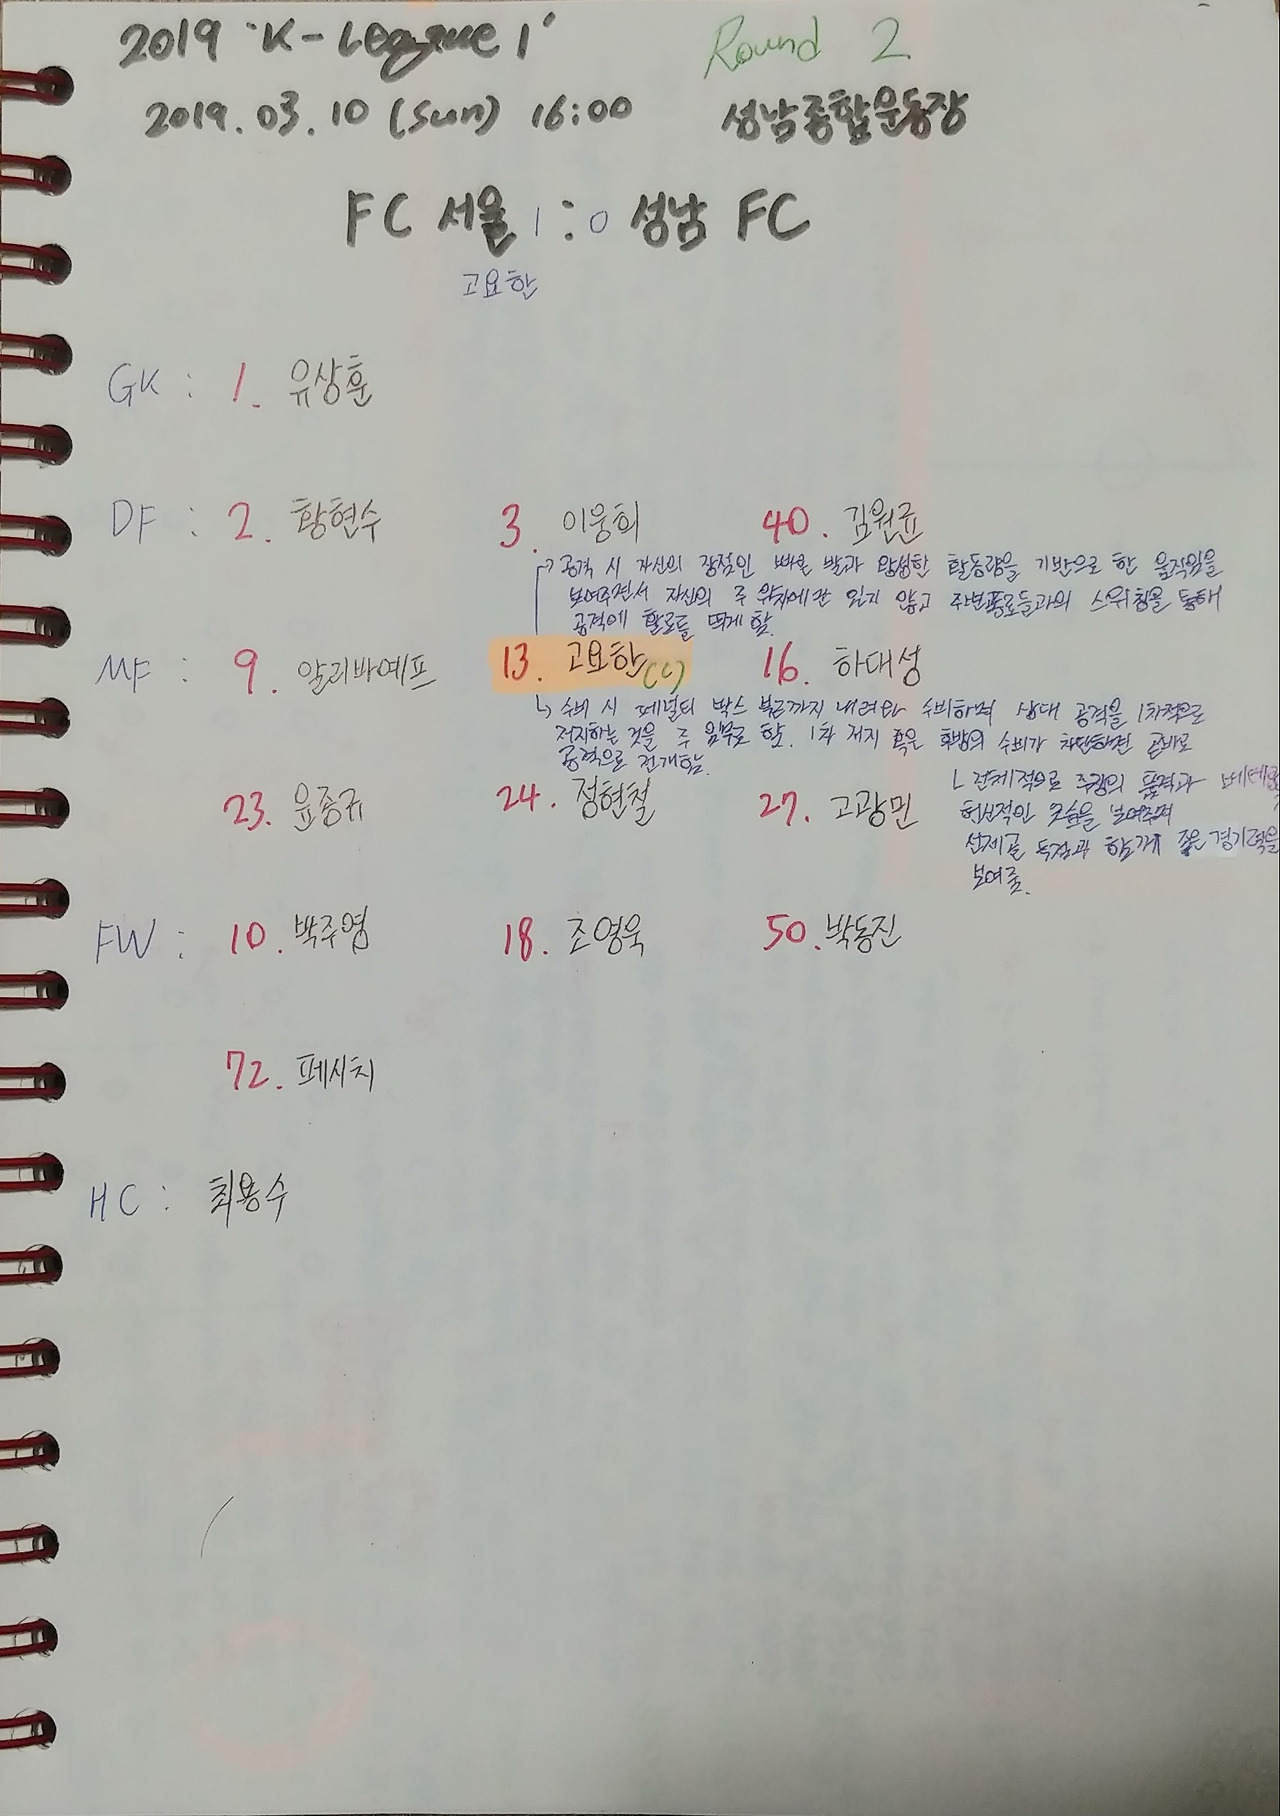 2019 'K-League 1' Round 2
2019.03.10 (Sun) 16:00 성남종합운동장
FC 서울 1:0 성남 FC
고요한
GK : 1. 유상훈
DF : 2. 황현수 3. 이웅희 40. 김원균
↱ 공격 시 자신의 장점인 빠른 발과 왕성한 활동량을 기반으로 한 움직임을
보여주면서 자신의 주 위치에만 있지 않고 주변동료들과의 스위칭을 통해
공격에 활로를 띄게 함.
MF : 9. 알리바예프 13. 고요한(C) 16. 하대성
↳ 수비 시 페널티 박스 부근까지 내려와 수비하며 상대 공격을 1차적으로
저지하는 것을 주 임무로 함. 1차 저지 혹은 후방의 수비가 차단하면 곧바로
공격으로 전개함.
23. 윤종규 24. 정현철 27. 고광민
ㄴ 전체적으로 주장의 품격과 베테랑
헌신적인 모습을 보여주며
선제골 득점과 함께 좋은 경기력을
보여줌.
FW : 10. 박주영 18. 조영욱 50. 박동진
72. 페시치
HC : 최용수